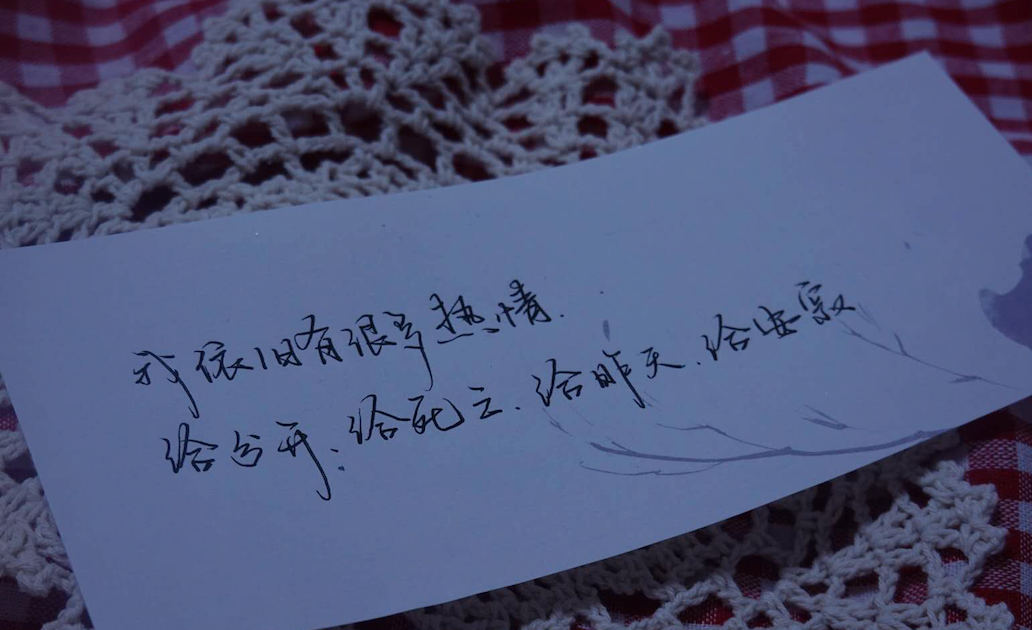 我依旧有很多热情.
给分开.给死亡.给昨天.给安寂